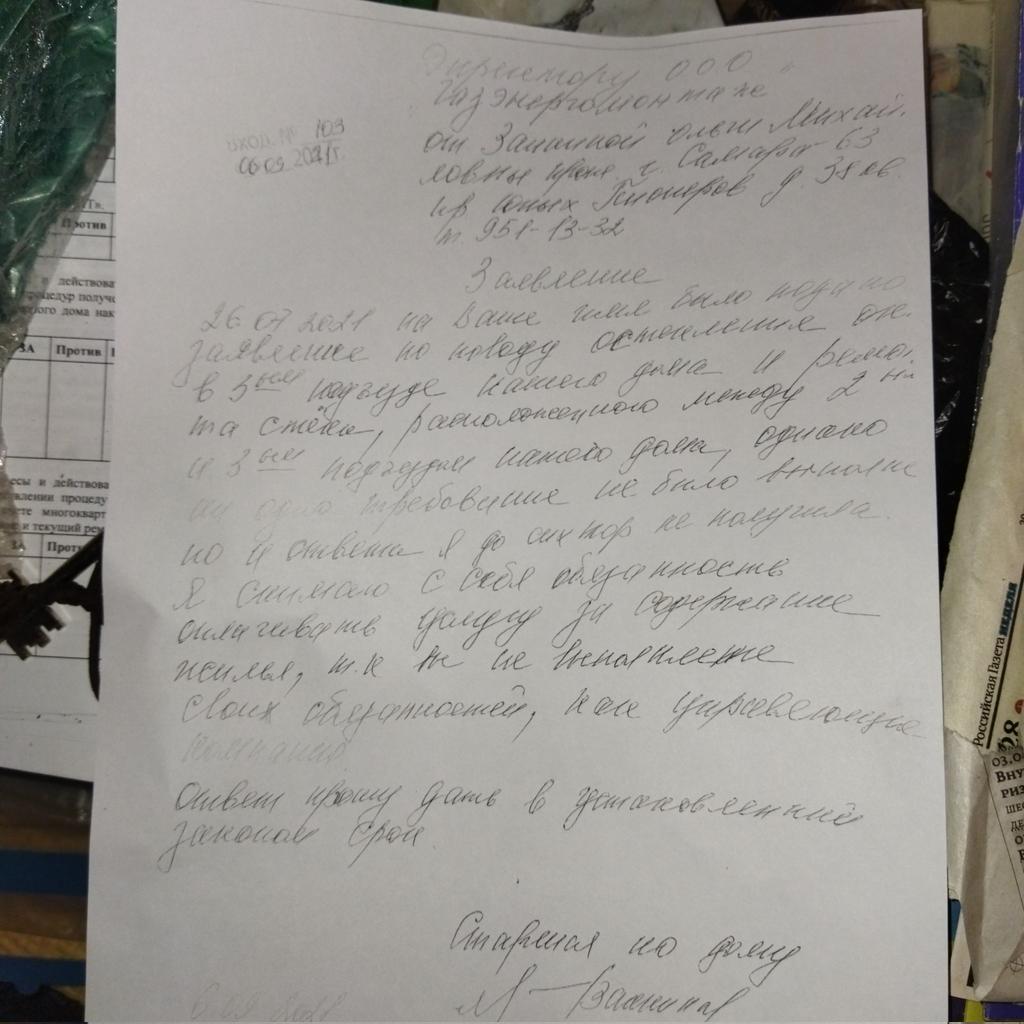 Директору ООО "
Газэнергомонтаж
от Ольги Михай.
ловны прож. г. Самара 63
пр. Юных Пионеров д. 38 кв.
т. 951-13-32
ВХОД. № 103
06.09.2021г.
Заявление
26 07 2021 на Ваше имя было подано
заявление по поводу остекления ок.
в 3ьем подъезде нашего дома и ремо.
та стены, расположенного между 2 ым
и 3 ьим подъездом нашего дома, однако
ни одно требование не было выполне
но и ответа я до сих пор не получила.
Я снимаю с себя обязанность
оплачивать услугу за содержание
жилья, т.к вы не выполняете
своих обязанностей, как управляющая
компания
Ответ прошу дать в установленный
законом срок.
Старшая по дому
6.09 2021
Против
и действова
процедур получе
дома нак
ЗА Против
и действова
процеду
многокварт
и текущий рем
ЗА Проти
Российская Газета НЕДЕЛЯ
03.0
Вну
риз